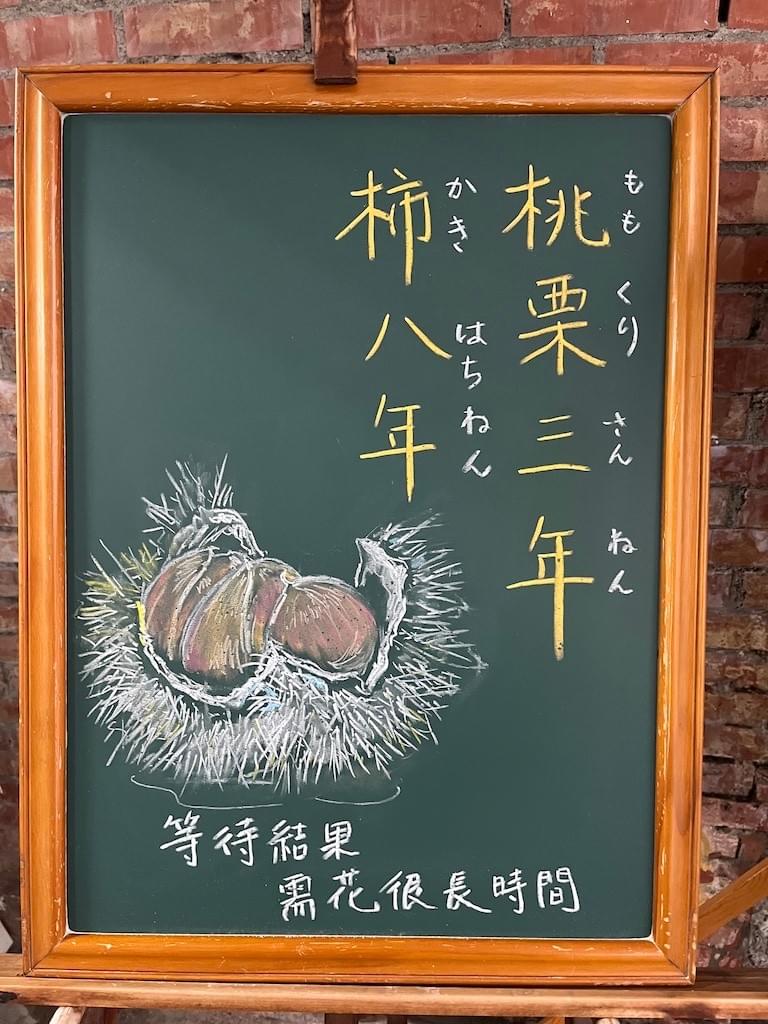 桃栗三年
もも くり さん ねん
柿八年
かき はちねん
等待結果
需花很長時間